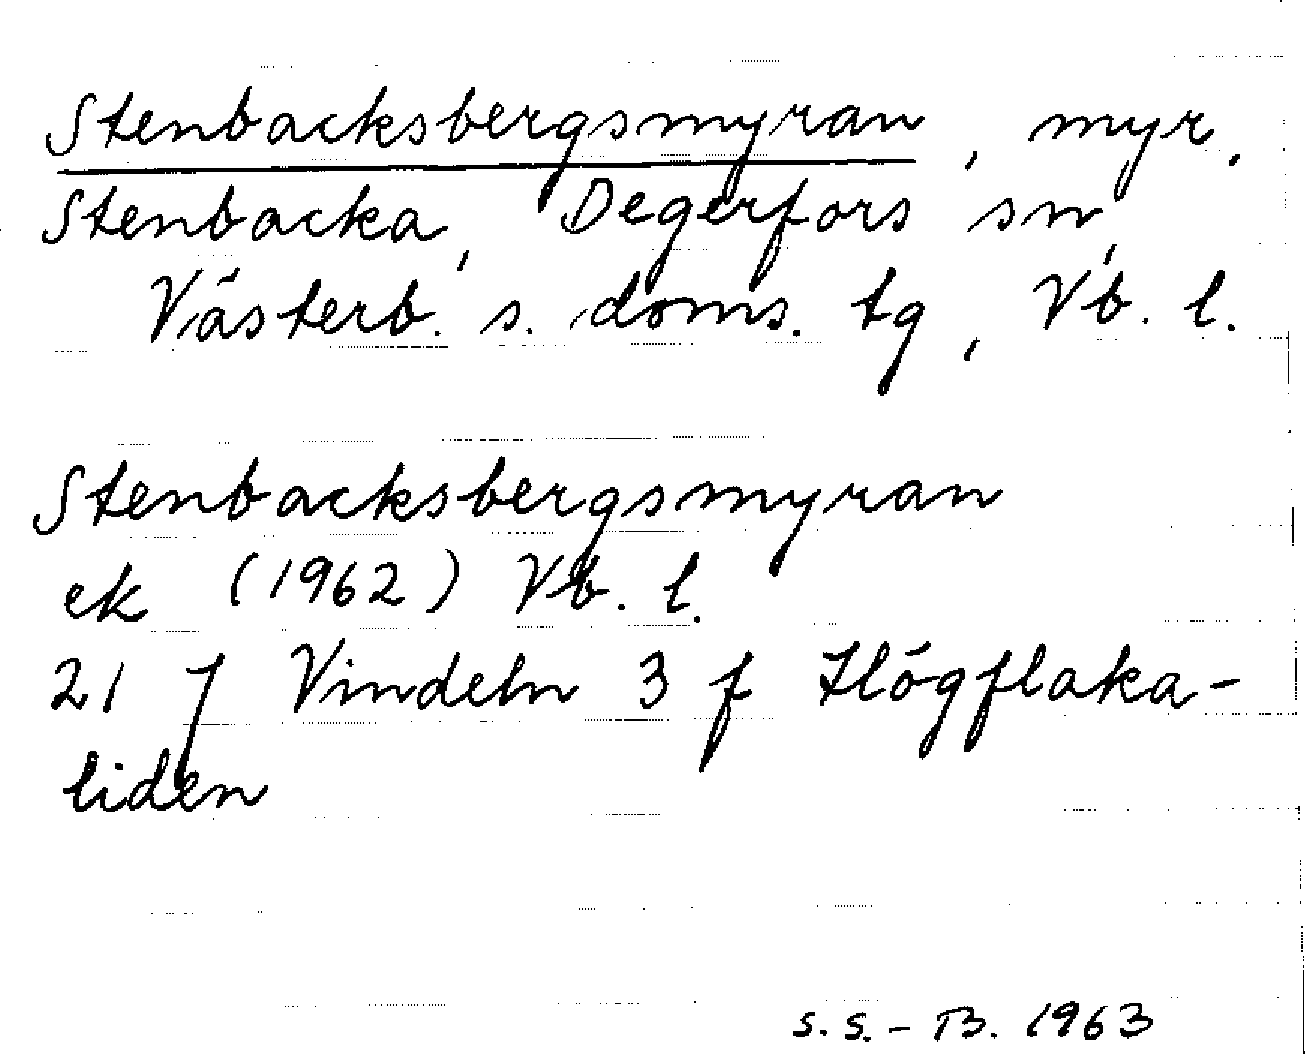 Stenbacksbergsmyran, myr,
Stenbacka, Degerfors sn,
Västerb. s. doms. tg, Vb. l.
Stenbacksbergsmyran
ek (1962) Vb. l.
21 J Vindeln 3 f Högflaka-
liden
S. S. - B. 1963